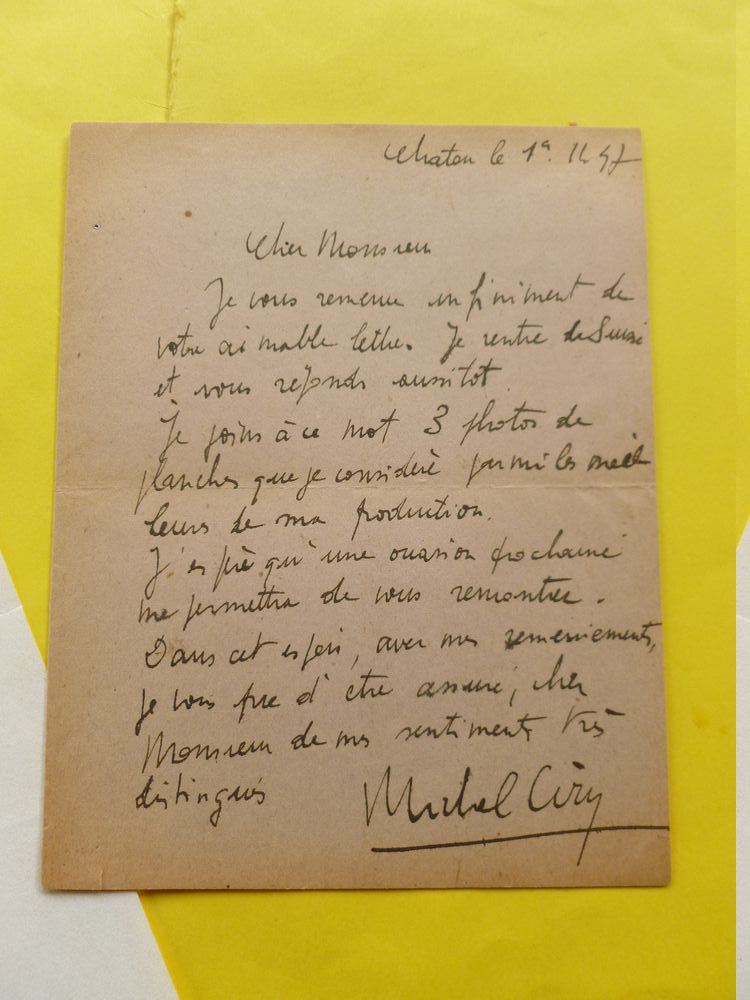 Chatou le 1er. 12 47
Cher Monsieur
Je vous remercie infiniment de
votre aimable lettre. Je rentre de Suisse
et vous réponds aussitôt.
Je joins à ce mot 3 photos de
planches que je considère parmi les meil
leurs de ma production.
J'espère qu'une occasion prochaine
me permettra de vous rencontrer.
Dans cet espoir, avec mes remerciements,
je vous prie d'être assuré, cher
Monsieur de mes sentiments très
distingués
Michel Ciry